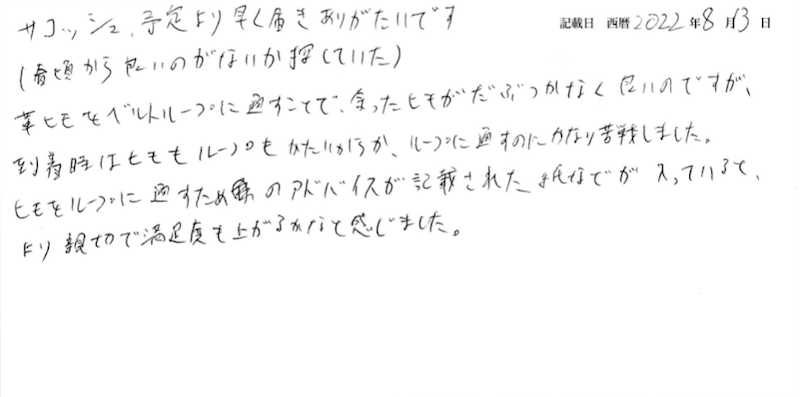 記載日 西暦 2022 年 8 月 13 日
サコッシュ、予定より早く届きありがたいです
(春頃から良いのがないか探していた)
革ヒモをベルトループに通すことで、余ったヒモがだぶつかなく良いのですが、
到着時はヒモもループもかたいからか、ループに通すのにかなり苦戦しました。
ヒモをループに通すための アドバイスが記載された 紙などが 入っていると、
より親切で満足度も上がるかなと感じました。